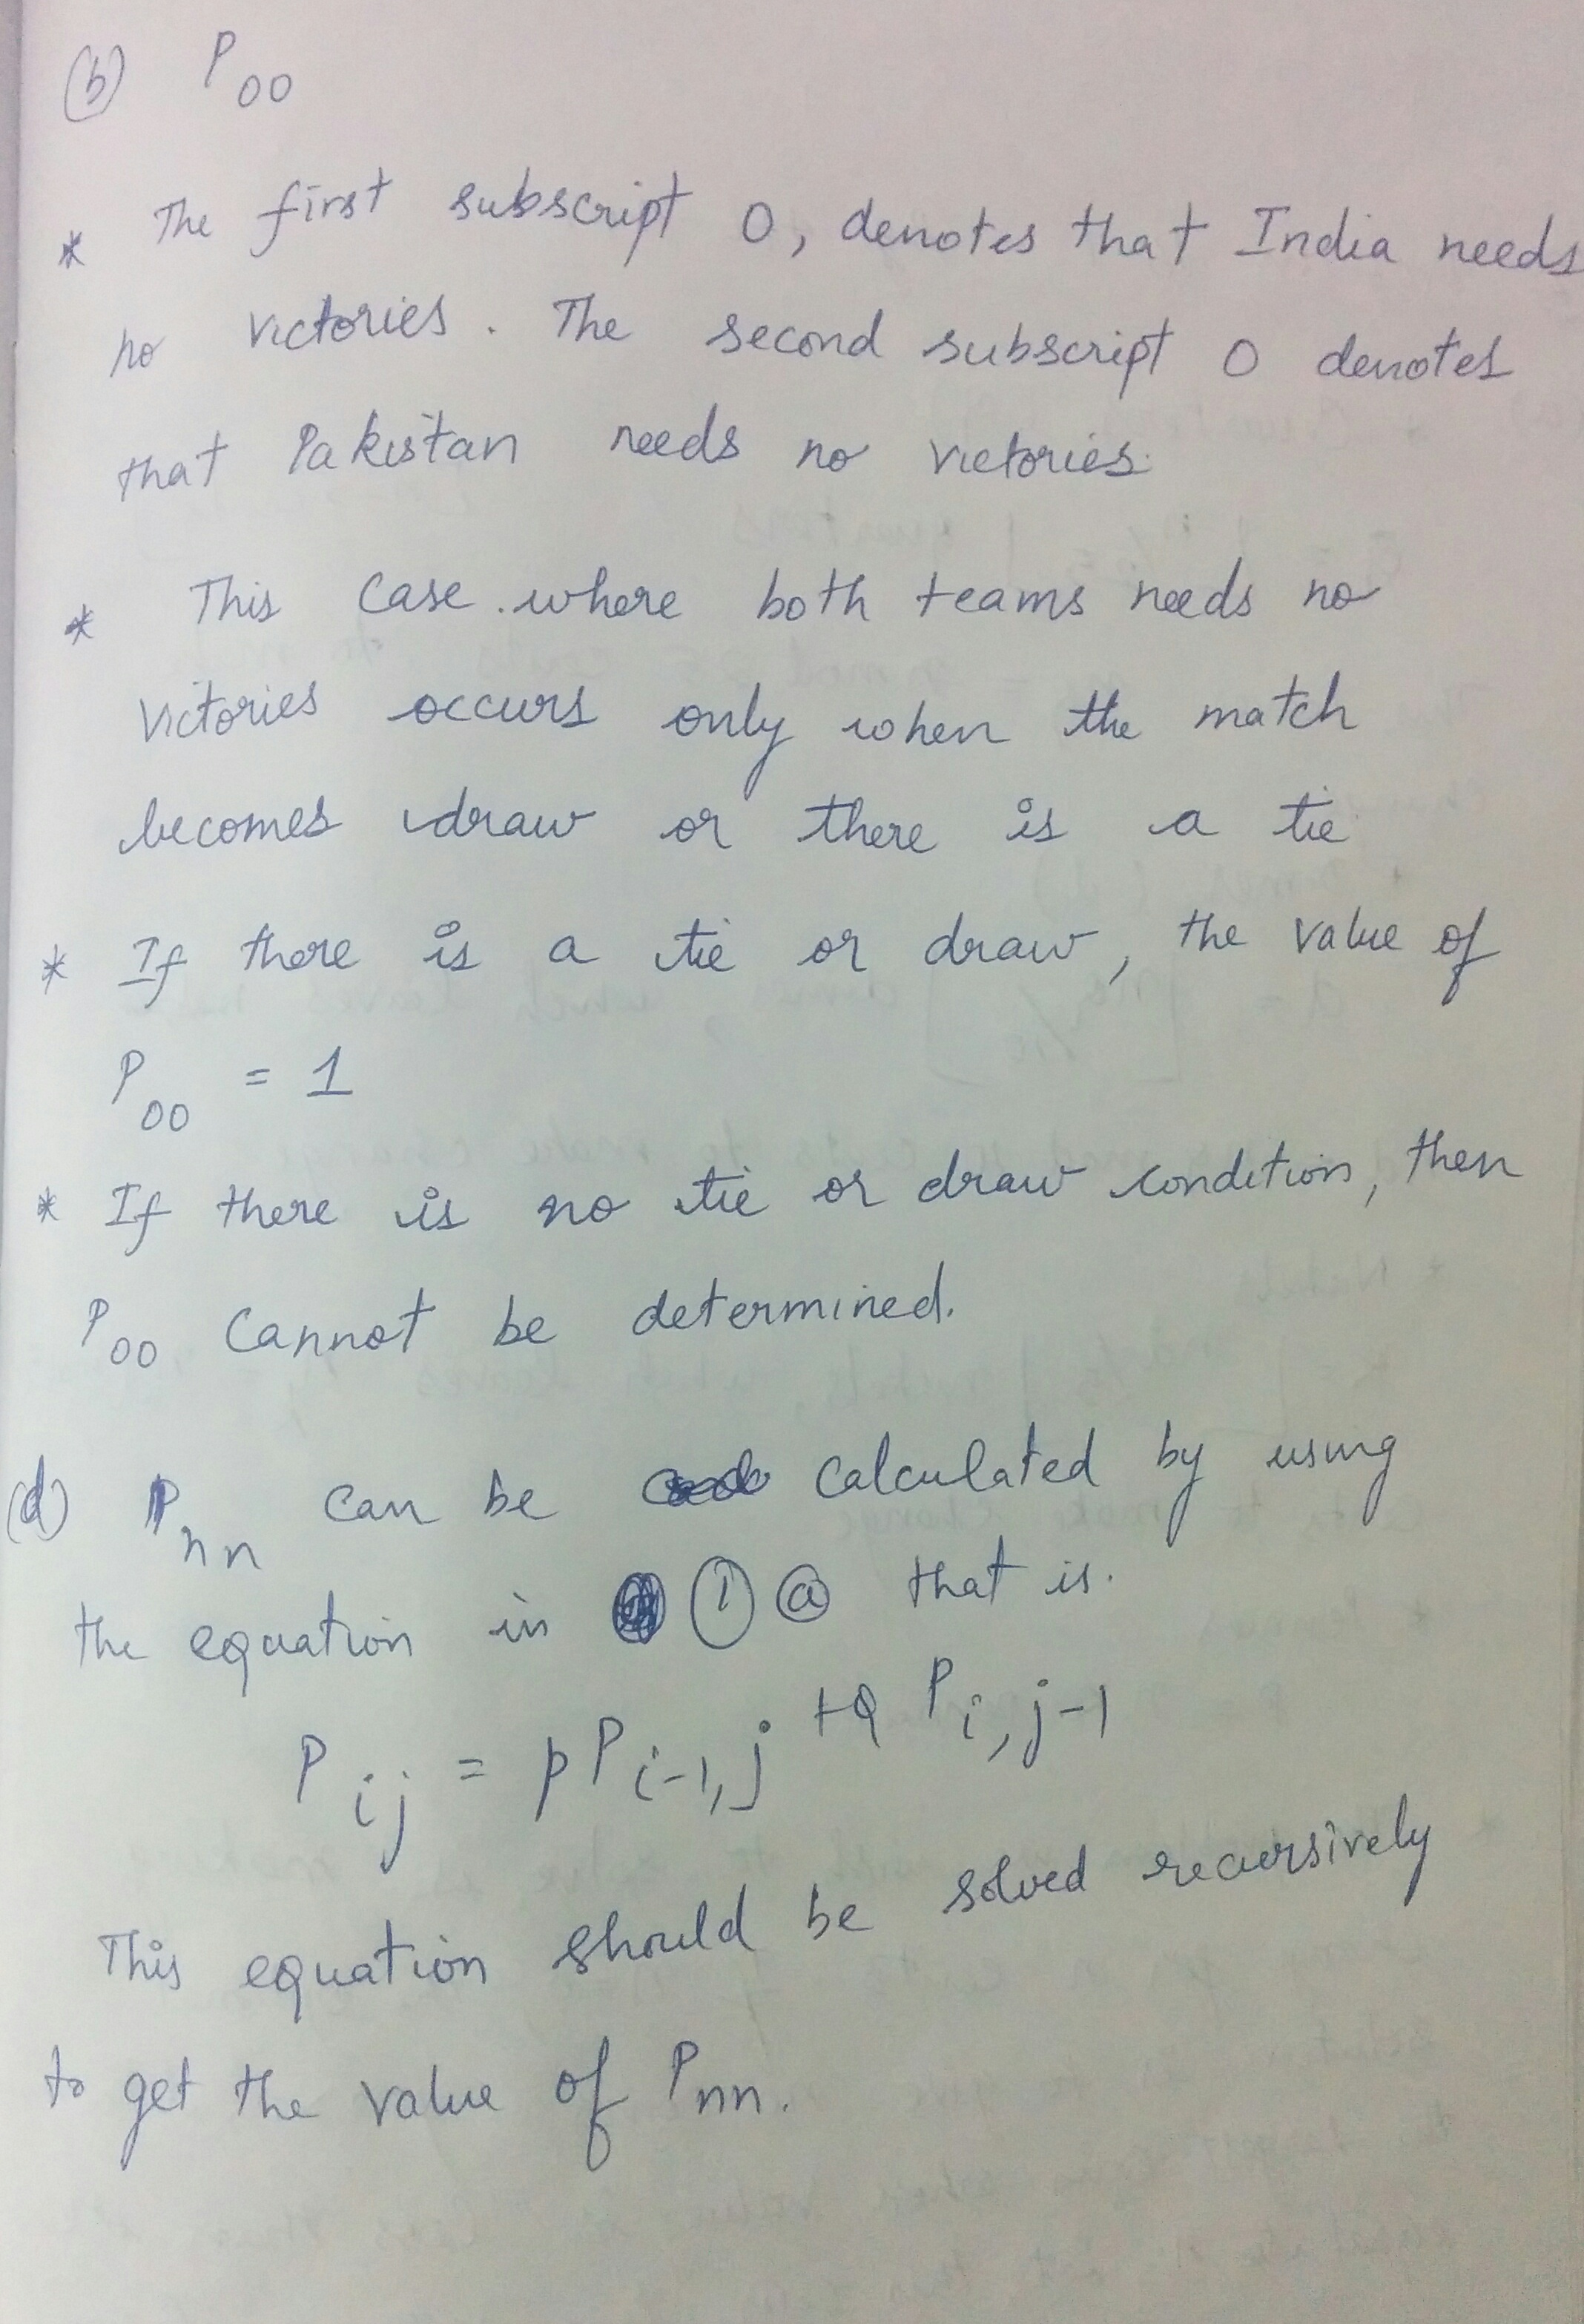 (b) P00
* The first subscript 0, denotes that India needs
no victories. The second subscript 0 denotes
that Pakistan needs no victories.
* This case where both teams needs no
victories occurs only when the match
becomes draw or there is a tie
* If there is a tie or draw, the value of
P00 = 1
* If there is no tie or draw condition, then
P00 cannot be determined.
(d) Pnn can be calculated by using
the equation in (1) (a) that is.
Pij = pPi-1,j +Q Pi,j-1
This equation should be solved recursively
to get the value of Pnn.